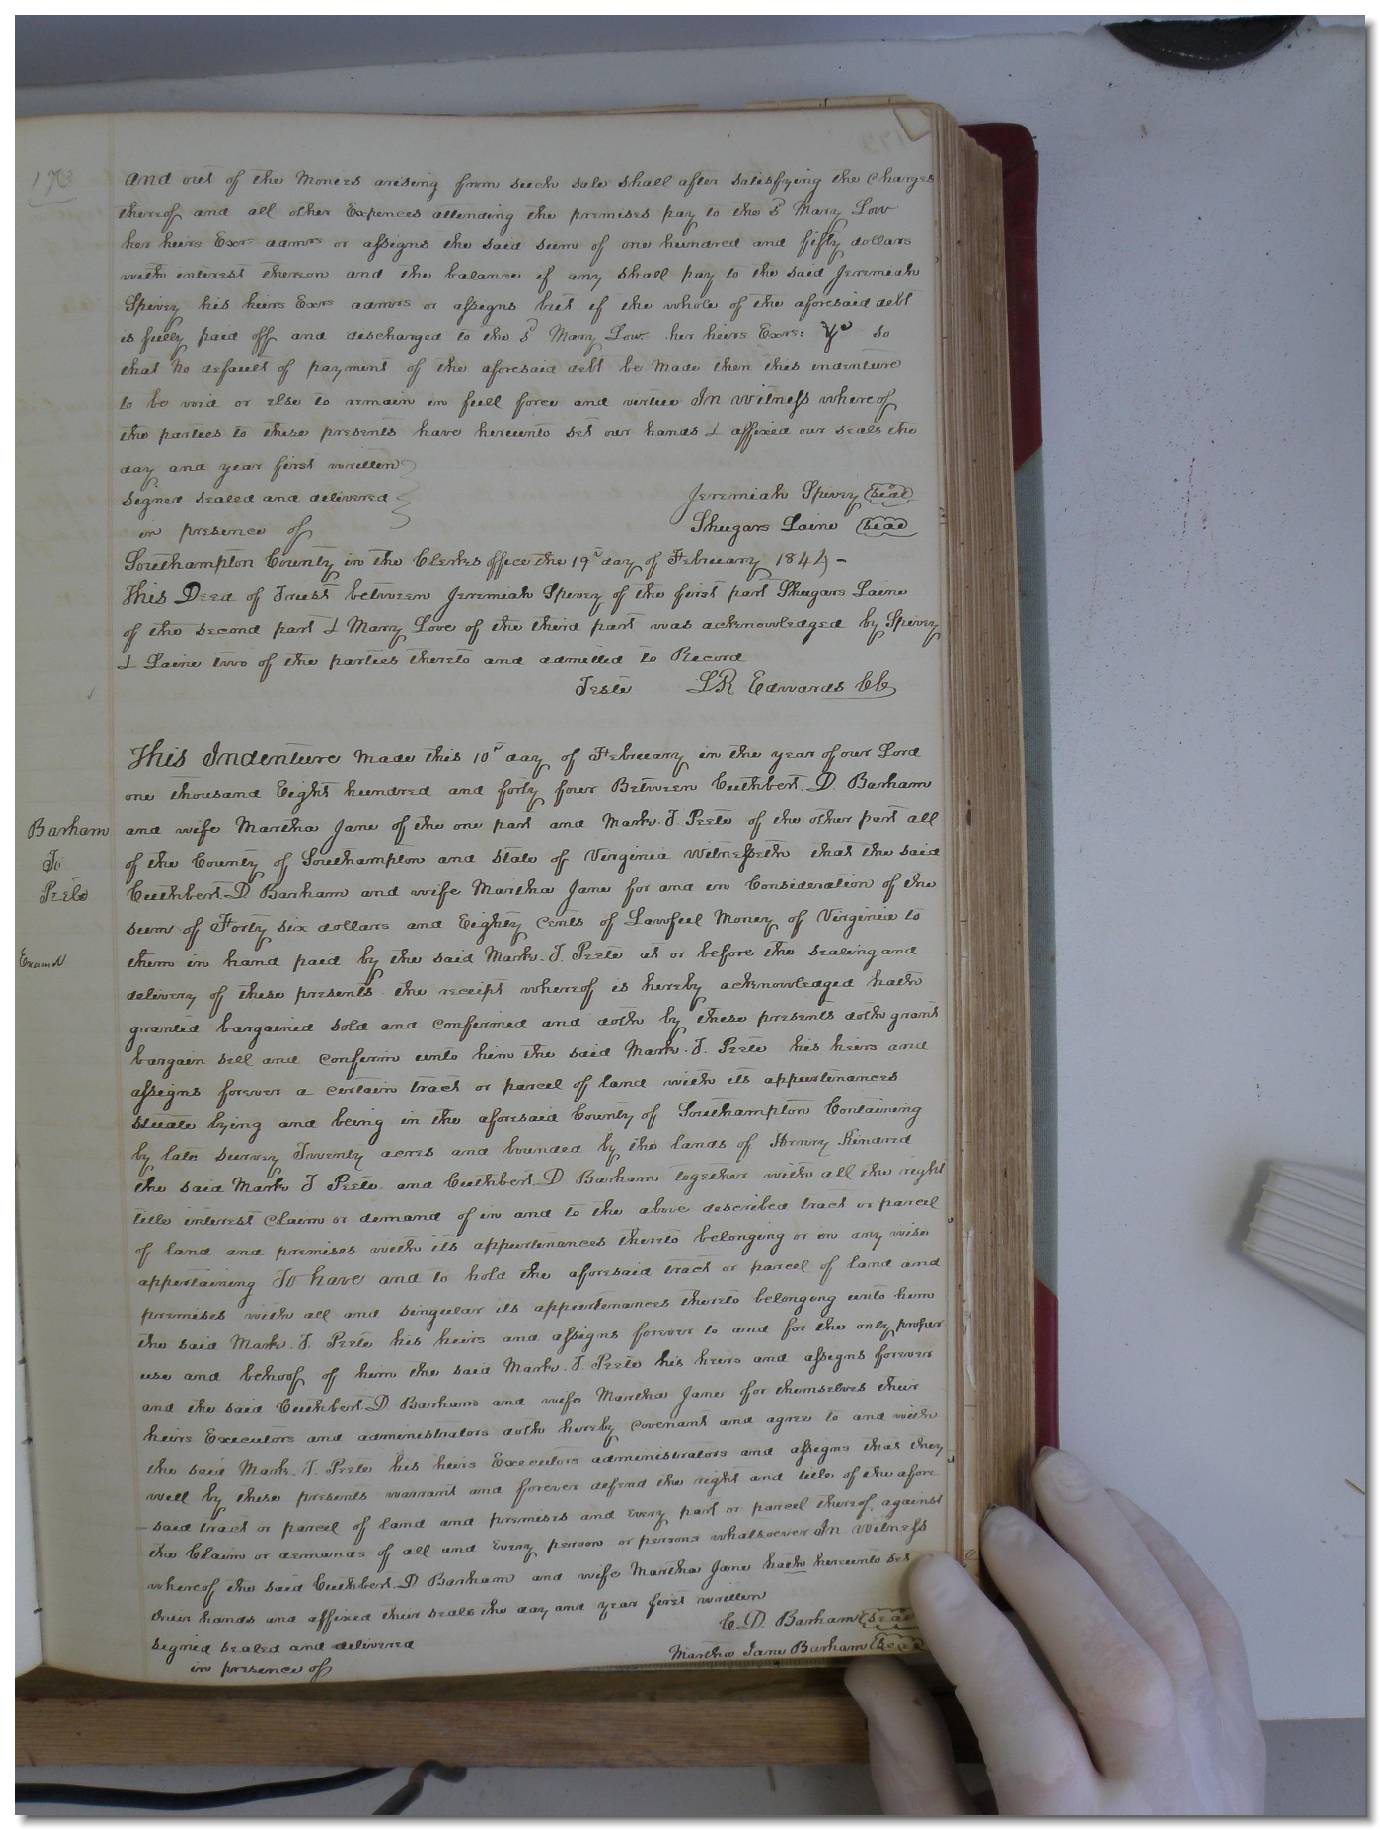 173
and out of the Monees arising from such sale shall after satisfying the Charges
thereof and all other Expences attending the premises pay to the sd Mary Low
her heirs Exrs admrs or assigns the said sum of one hundred and fifty dollars
with interest thereon and the balance if any shall pay to the said Jeremiah
Spivey his heirs Exrs admrs or assigns but if the whole of the aforesaid debt
is fully paid off and discharged to the sd Mary Low her heirs Exrs: &c so
that No default of payment of the aforesaid debt be Made then this indenture
to be void or else to remain in full force and virtue In Witness whereof
the parties to these presents have hereunto set our hands & affixed our seals the
day and year first written
signed sealed and delivered
in presence of
Jeremiah Spivey (seal)
Shugars Laine (seal)
Southampton County in the Clerks office the 19th day of February 1844 -
This Deed of Trust between Jeremiah Spivey of the first part Shugars Laine
of the second part & Mary Love of the third part was acknowledged by Spivey
& Laine two of the parties thereto and admitted to Record
Teste LR Edwards CC
This Indenture Made this 10th day of February in the year of our Lord
one thousand Eight hundred and forty four Between Cuthbert. D. Barham
Barham and wife Martha Jane of the one part and Mark. J. Peete of the other part all
To of the County of Southampton and State of Virginia Witnesseth that the said
Peete Cuthbert D Barham and wife Martha Jane for and in Consideration of the
sum of Forty six dollars and Eighty Cents of Lawful Money of Virginia to
Examd them in hand paid by the said Mark. J. Peete at or before the sealing and
delivery of these presents the receipt whereof is hereby acknowledged hath
granted bargained sold and confirmed and doth by these presents doth grant
bargain sell and confirm unto him the said Mark. J. Peete his heirs and
assigns forever a certain tract or parcel of land with its appurtenances
situate lying and being in the aforesaid County of Southampton Containing
by late survey Twenty acres and bounded by the lands of Henry Kindred
the said Mark J Peete and Cuthbert D. Barham together with all the right
title interest Claim or demand of in and to the above described tract or parcel
of land and premises with its appurtenances thereto belonging or in any wise
appertaining To have and to hold the aforesaid tract or parcel of land and
premises with all and singular its appurtenances thereto belonging unto him
the said Mark. J. Peete his heirs and assigns forever to and for the only proper
use and behoof of him the said Mark. J. Peete his heirs and assigns forever
and the said Cuthbert D Barham and wife Martha Jane for themselves their
heirs Executors and administrators doth hereby covenant and agree to and with
the said Mark J. Peete his heirs Executors administrators and assigns that they
will by these presents warrant and forever defend the right and title of the afore
- said tract or parcel of land and premises and every part or parcel thereof against
the Claim or demands of all and Every person or persons whatsoever In Witness
whereof the said Cuthbert D Barham and wife Martha Jane hath hereunto set
their hands and affixed their seals the day and year first written
signed sealed and delivered
in presence of
C. D. Barham (seal
Martha Jane Barham (seal